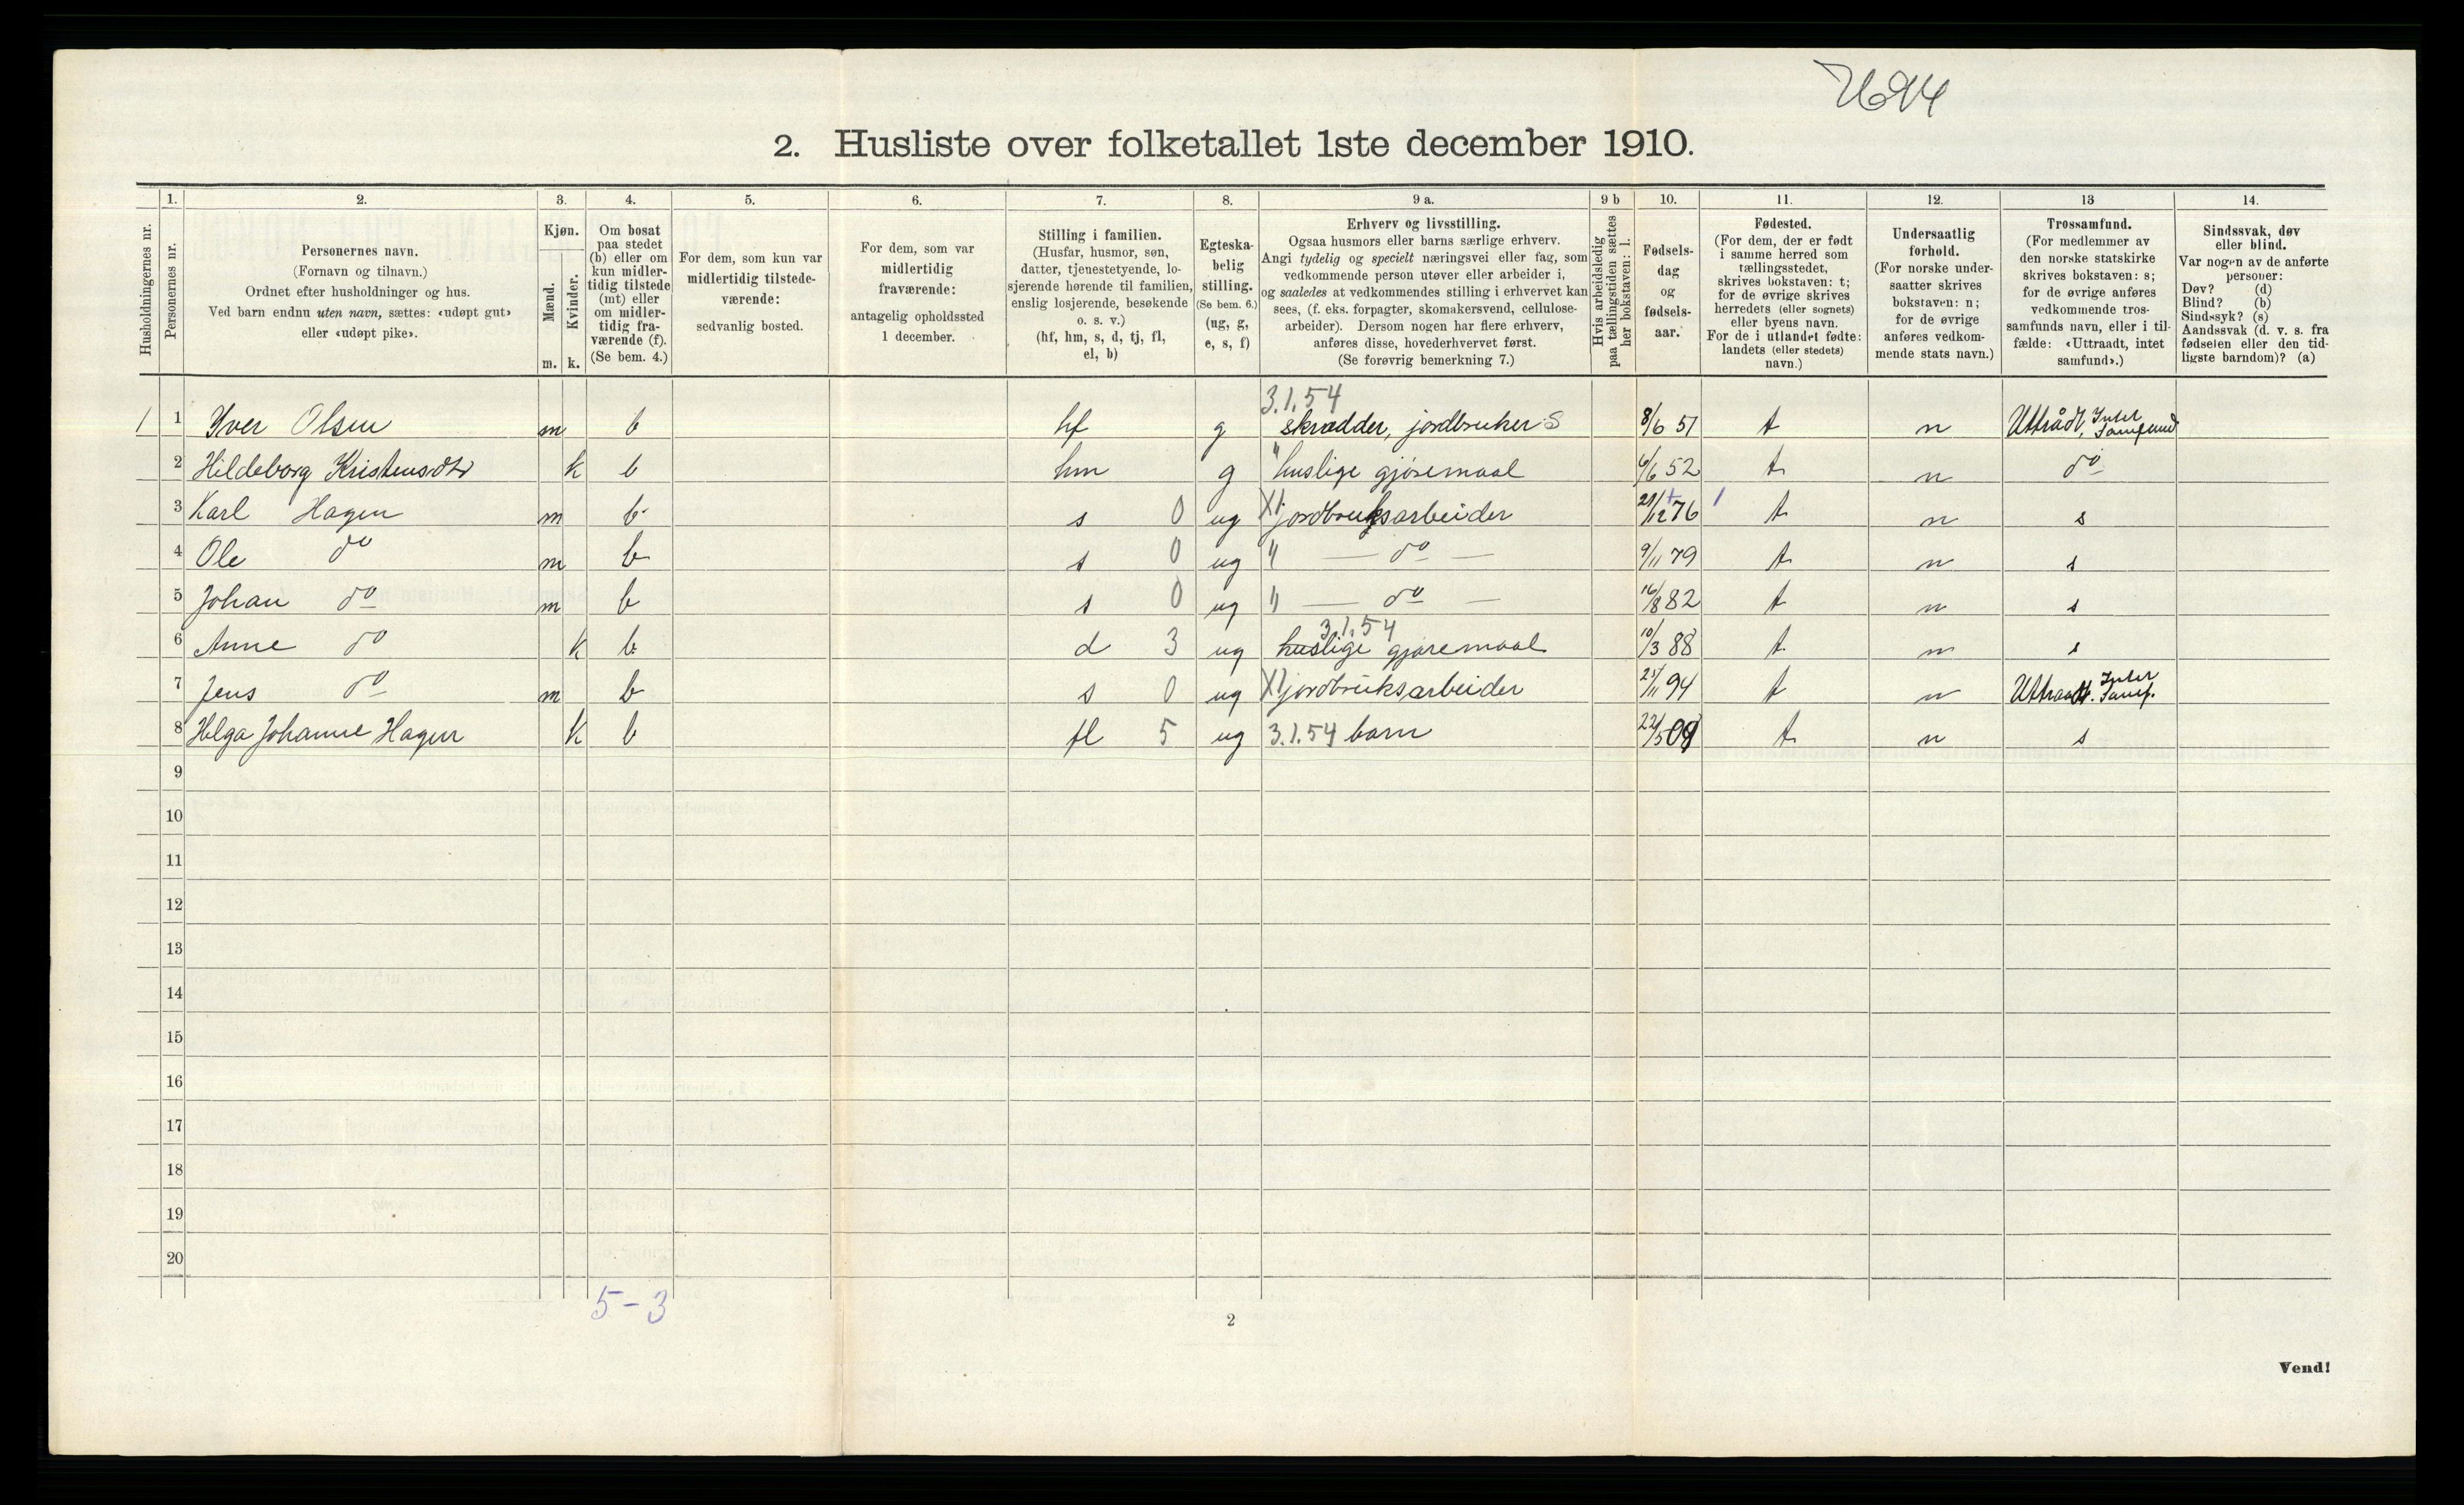 7694
2. Husliste over folketallet 1ste december 1910.
Husholdningernes nr.
1. Personernes nr.
2. Personernes navn. (Fornavn og tilnavn.) Ordnet efter husholdninger og hus. Ved barn endnu uten navn, sættes: «udøpt gut» eller «udøpt pike».
3. Kjøn. Mænd. m. Kvinder. k.
4. Om bosat paa stedet (b) eller om kun midlertidig tilstede (mt) eller om midlertidig fraværende (f). (Se bem. 4.)
5. For dem, som kun var midlertidig tilstedeværende: sedvanlig bosted.
6. For dem, som var midlertidig fraværende: antagelig opholdssted 1 december.
7. Stilling i familien. (Husfar, husmor, søn, datter, tjenestetyende, losjerende hørende til familien, enslig losjerende, besøkende o. s. v.) (hf, hm, s, d, tj, fl, el, b)
8. Egteskabelig stilling. (Se bem. 6.) (ug, g, e, s, f)
9 a. Erhverv og livsstilling. Ogsaa husmors eller barns særlige erhverv. Angi tydelig og specielt næringsvei eller fag, som vedkommende person utøver eller arbeider i, og saaledes at vedkommendes stilling i erhvervet kan sees, (f. eks. forpagter, skomakersvend, cellulosearbeider). Dersom nogen har flere erhverv, anføres disse, hovederhvervet først. (Se forøvrig bemerkning 7.)
9 b Hvis arbeidsledig paa tællingstiden sættes her bokstaven: l.
10. Fødselsdag og fødselsaar.
11. Fødested. (For dem, der er født i samme herred som tællingsstedet, skrives bokstaven: t; for de øvrige skrives herredets (eller sognets) eller byens navn. For de i utlandet fødte: landets (eller stedets) navn.)
12. Undersaatlig forhold. (For norske undersaatter skrives bokstaven: n; for de øvrige anføres vedkommende stats navn.)
13 Trossamfund. (For medlemmer av den norske statskirke skrives bokstaven: s; for de øvrige anføres vedkommende trossamfunds navn, eller i tilfælde: «Uttraadt, intet samfund».)
14. Sindssvak, døv eller blind. Var nogen av de anførte personer: Døv? (d) Blind? (b) Sindssyk? (s) Aandssvak (d. v. s. fra fødselen eller den tidligste barndom)? (a)
3.1.54
1 1 Yver Olsen m b hf g skrædder, jordbruker S 8/6 51 t n Uttrådt, Intet Samfund
2 Hildeborg Kristensdtr k b hm g " huslige gjøremaal 6/6 52 t n do
3 Karl Hagen m b s 0 ug X jordbruksarbeider 21/12 76 t n s
4 Ole do m b s 0 ug " — do — 9/11 79 t n s
5 Johan do m b s 0 ug " — do — 16/8 82 t n s
3.1.54
6 Anne do k b d 3 ug huslige gjøremaal 10/3 88 t n s
7 Jens do m b s 0 ug X jordbruksarbeider 21/11 94 t n Uttraadt. Intet Samf.
8 Helga Johanne Hagen k b fl 5 ug 3.1.54 barn 22/5 09 t n s
9
10
11
12
13
14
15
16
17
18
19
20
5-3
2
Vend!